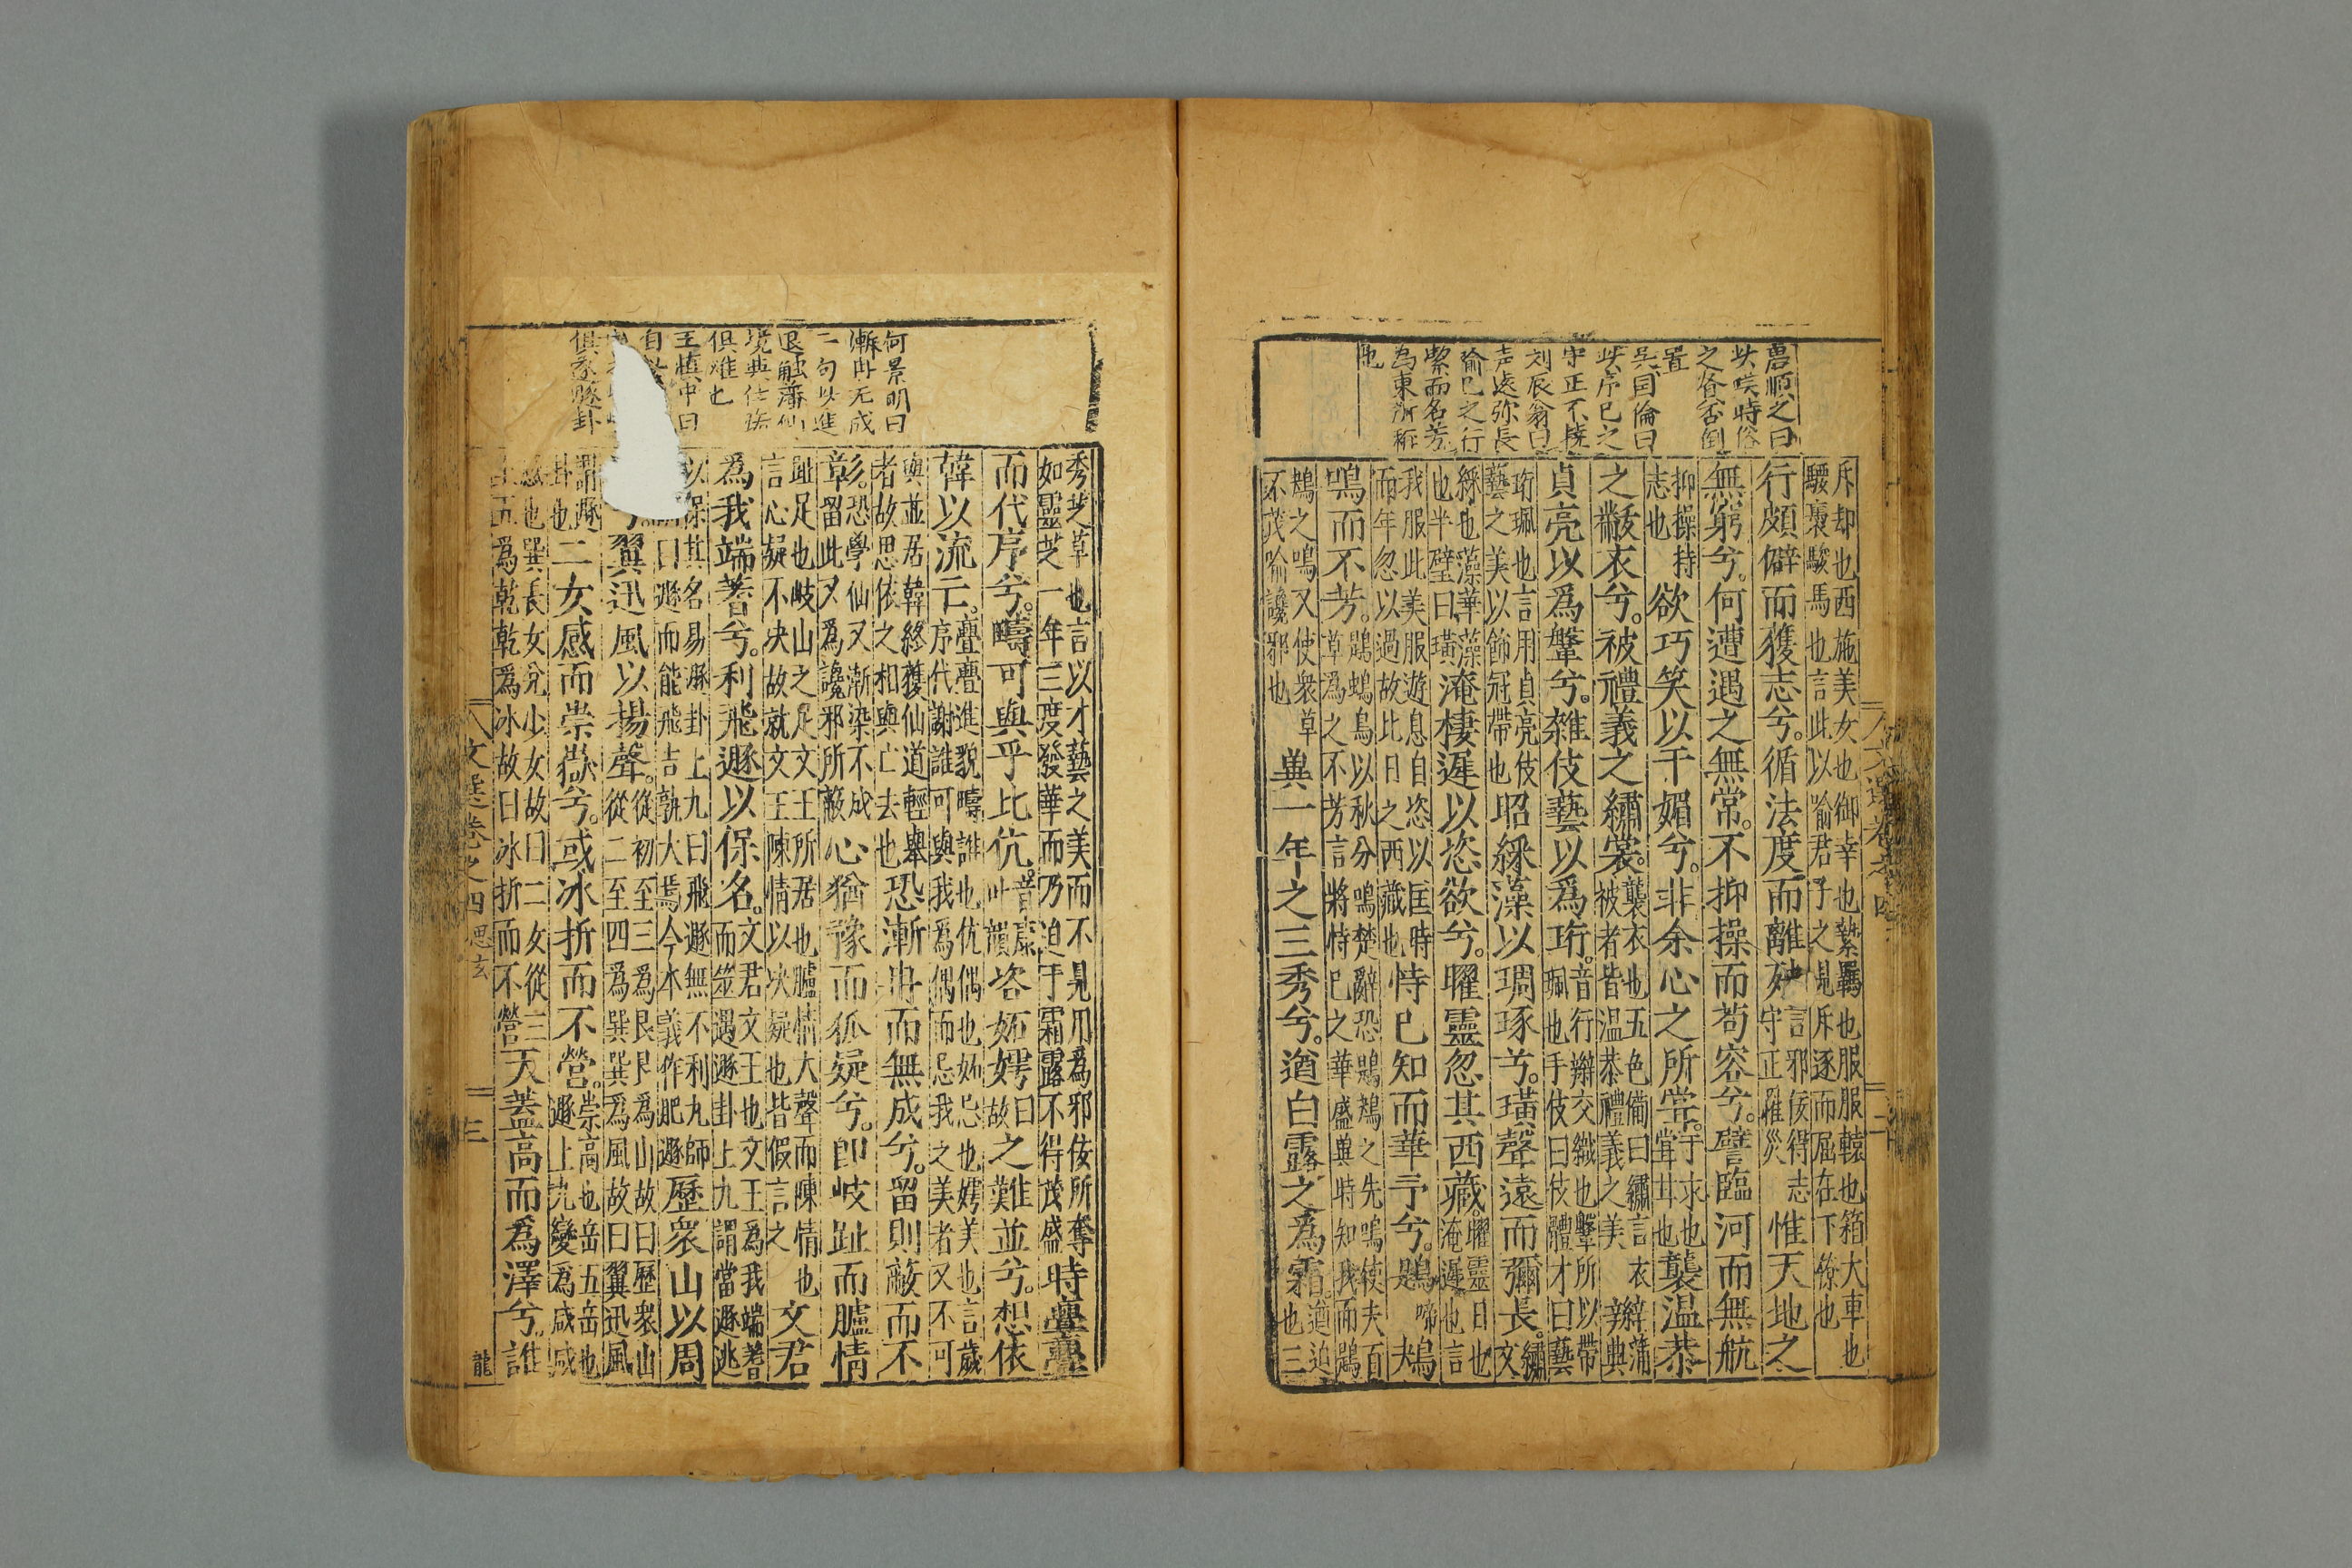 唐順之曰
此嘆時俗
之昏否倒
置
吳国倫曰
此序已之
守正不撓
刘辰翁曰
声遠弥長
喻已之行
絜而名芳
為衆所称
也
斥却也西施美女也御幸也縶羈也服服轅也箱大車也
騕褭駿馬也言此以喻君子之見斥逐而屈在下僚也
行頗僻而獲志兮。循法度而離殃言邪佞得志守正罹災惟天地之
無窮兮。何遭遇之無常。不抑操而苟容兮。譬臨河而無航
抑操持志也欲巧笑以干媚兮。非余心之所嘗。于求也嘗甘也襲温恭
之黻衣兮。被禮義之繡裳。襲衣也五色備曰繡言衣被者皆温恭禮義之美辮蒲典
貞亮以爲鞶兮。雜伎藝以爲珩。音行辮交織也鞶所以帶珮也手伎曰伎體才曰藝
珩珮也言用貞亮伎藝之美以飾冠帶也昭綵藻以琱琢兮。璜聲遠而彌長。繡文
綵也藻華藻也半璧曰璜淹棲遲以恣欲兮。曜靈忽其西藏。曜靈日也淹遲也言
我服此美服遊息自恣以匡時而年忽以過故比日之西藏也恃已知而華予兮。鶗啼鴂
鳴而不芳。鶗鴂鳥以秋分鳴楚辭恐鶗鴂之先鳴使夫百草爲之不芳言將恃已之華盛與時知我而鶗
鴂之鳴又使衆草不茂喻讒邪也冀一年之三秀兮。遒白露之爲霜。遒迫也三
文選卷之四
何景明曰
漸冉无成
二句以進
退觸藩仙
境與仕途
俱难也
王慎中曰
俱以遯卦
秀芝草也言以才藝之美而不見用爲邪佞所奪
如靈芝一年三度發華而乃迫于霜露不得茂盛時亹亹
而代序兮。疇可與乎比伉。昔康叶韻咨妬嫮曰故之難並兮。想依
韓以流亡。亹亹進貌疇誰也伉偶也妬忌也嫮美也言歲序代謝誰可與我爲偶而忌我之美者又不可
與並居韓終獲仙道輕舉者故思依之相與亡去也恐漸冉而無成兮。留則蔽而不
彰。恐學仙又漸染不成留此又爲讒邪所蔽心猶豫而狐疑兮。卽岐趾而臚情
趾足也岐山之足文王所居也臚情大聲而陳情也
言心疑不决故就文王陳情以决疑也皆假言之文君
爲我端蓍兮。利飛遯以保名。文君文王也文王爲我端蓍而筮遇遯卦上九謂當遯逃
以保其名易遯卦上九曰飛遯無不利九師
曰遯而能飛吉孰大焉今本義作肥遯歷衆山以周
兮翼迅風以揚聲。從初至三爲艮艮爲山故曰歷衆山從二至四爲巽巽爲風故曰翼迅風
謂遯卦也二女感而崇嶽兮。或冰折而不營。崇高也岳五岳也遯上九變爲咸咸
感也巽長女兌少女故曰二女從三
五爲乾乾爲冰故曰冰折而不營天蓋高而爲澤兮。誰
文選卷之四 思玄 三 龍